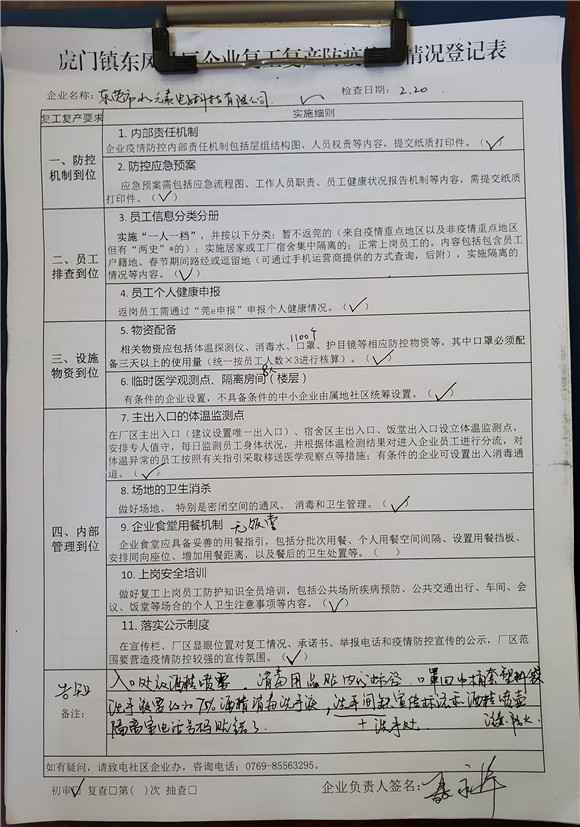 虎门镇东风社区企业复工复产防疫情况登记表
企业名称：东莞市水元素电子科技有限公司 ✓ 检查日期：2.20
复工复产要求 实施细则
一、防控机制到位
1. 内部责任机制
企业疫情防控内部责任机制包括层组结构图、人员权责等内容，提交纸质打印件。（✓）
2. 防控应急预案
应急预案需包括应急流程图、工作人员职责、员工健康状况报告机制等内容，需提交纸质
打印件。（✓）
二、员工排查到位
3. 员工信息分类分册
实施“一人一档”，并按以下分类：暂不返莞的（来自疫情重点地区以及非疫情重点地区
但有“两史”*的）；实施居家或工厂宿舍集中隔离的；正常上岗员工的。内容包括包含员工
户籍地、春节期间路经或逗留地（可通过手机运营商提供的方式查询，后附），实施隔离的
情况等内容。（✓）
4. 员工个人健康申报
返岗员工需通过“莞e申报”申报个人健康情况。（✓）
三、设施物资到位
5. 物资配备
1100个
相关物资应包括体温探测仪、消毒水、口罩、护目镜等相应防控物资等，其中口罩必须配
备三天以上的使用量（统一按员工人数×3进行核算）。（✓）
6. 临时医学观测点、隔离房间（楼层）
有条件的企业设置，不具备条件的中小企业由属地社区统筹设置。（✓）
四、内部管理到位
7. 主出入口的体温监测点
在厂区主出入口（建议设置唯一出入口）、宿舍区主出入口、饭堂出入口设立体温监测点，
安排专人值守，每日监测员工身体状况，并根据体温检测结果对进入企业员工进行分流，对
体温异常的员工按照有关指引采取移送医学观察点等措施；有条件的企业可设置出入消毒通
道。（✓）
8. 场地的卫生消杀
做好场地、 特别是密闭空间的通风、 消毒和卫生管理。（✓）
9. 企业食堂用餐机制 无饭堂
企业食堂应具备妥善的用餐指引，包括分批次用餐、个人用餐空间间隔、设置用餐挡板、
安排同向座位、增加用餐距离，以及餐后的卫生处置等。（ ）
10. 上岗安全培训
做好复工上岗员工防护知识全员培训，包括公共场所疾病预防、公共交通出行、车间、会
议、饭堂等场合的个人卫生注意事项等内容。（✓）
11. 落实公示制度
在宣传栏、厂区显眼位置对复工情况、承诺书、举报电话和疫情防控宣传的公示，厂区范
围要营造疫情防控较强的宣传氛围。（✓）
备注：
入口处设酒精喷雾，消毒用品贴 标签，口罩回收桶套塑料袋
洗手液 75%酒精消毒洗手液，洗手间 宣传标示 酒精喷壶
隔离室电话号码贴 ＋洗手处
如有疑问，请致电社区企业办，咨询电话：0769-85563295。
初审✓ 复查□第( )次 抽查□ 企业负责人签名：